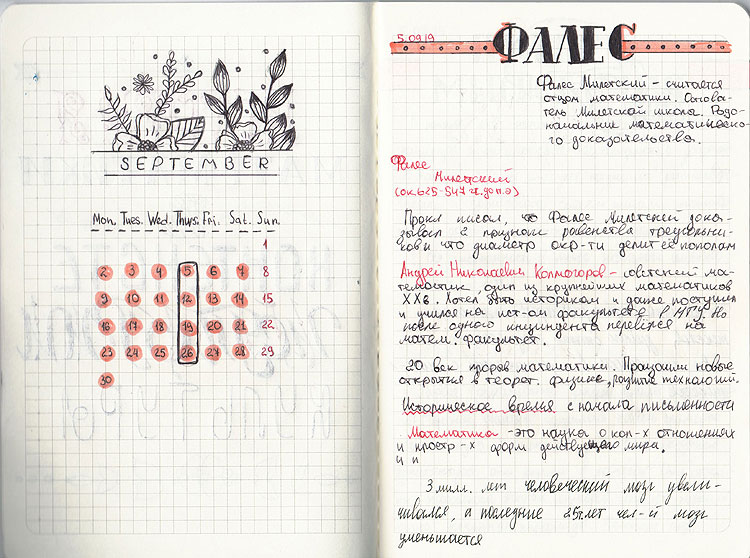 SEPTEMBER
Mon. Tues. Wed. Thurs. Fri. Sat. Sun.
1
2 3 4 5 6 7 8
9 10 11 12 13 14 15
16 17 18 19 20 21 22
23 24 25 26 27 28 29
30
5.09.19
ФАЛЕС
Фалес Милетский - считается
отцом математики. Основа-
тель Милетской школы. Родо-
начальник математическо-
го доказательства.
Фалес
Милетский
(ок 625-547 гг. до н.э)
Прокл писал, что Фалес Милетский дока-
зывал 2 признак равенства треугольни-
ков и что диаметр окр-ти делит её пополам
Андрей Николаевич Колмогоров - советский ма-
тематик, один из крупнейших математиков
XXв. Хотел быть историком и даже поступил
и учился на ист-ом факультете в МГУ. Но
после одного инцидента перевёлся на
матем. факультет.
20 век прорыв математики. Произошли новые
открытия в теорет. физике, развитие технологий.
Историческое время с начала письменности
Математика - это наука о кол-х отношениях
и простр-х форм действующего мира.
и и
3 милл. лет человеческий мозг увели-
чивался, а последние 25т.лет чел-й мозг
уменьшается